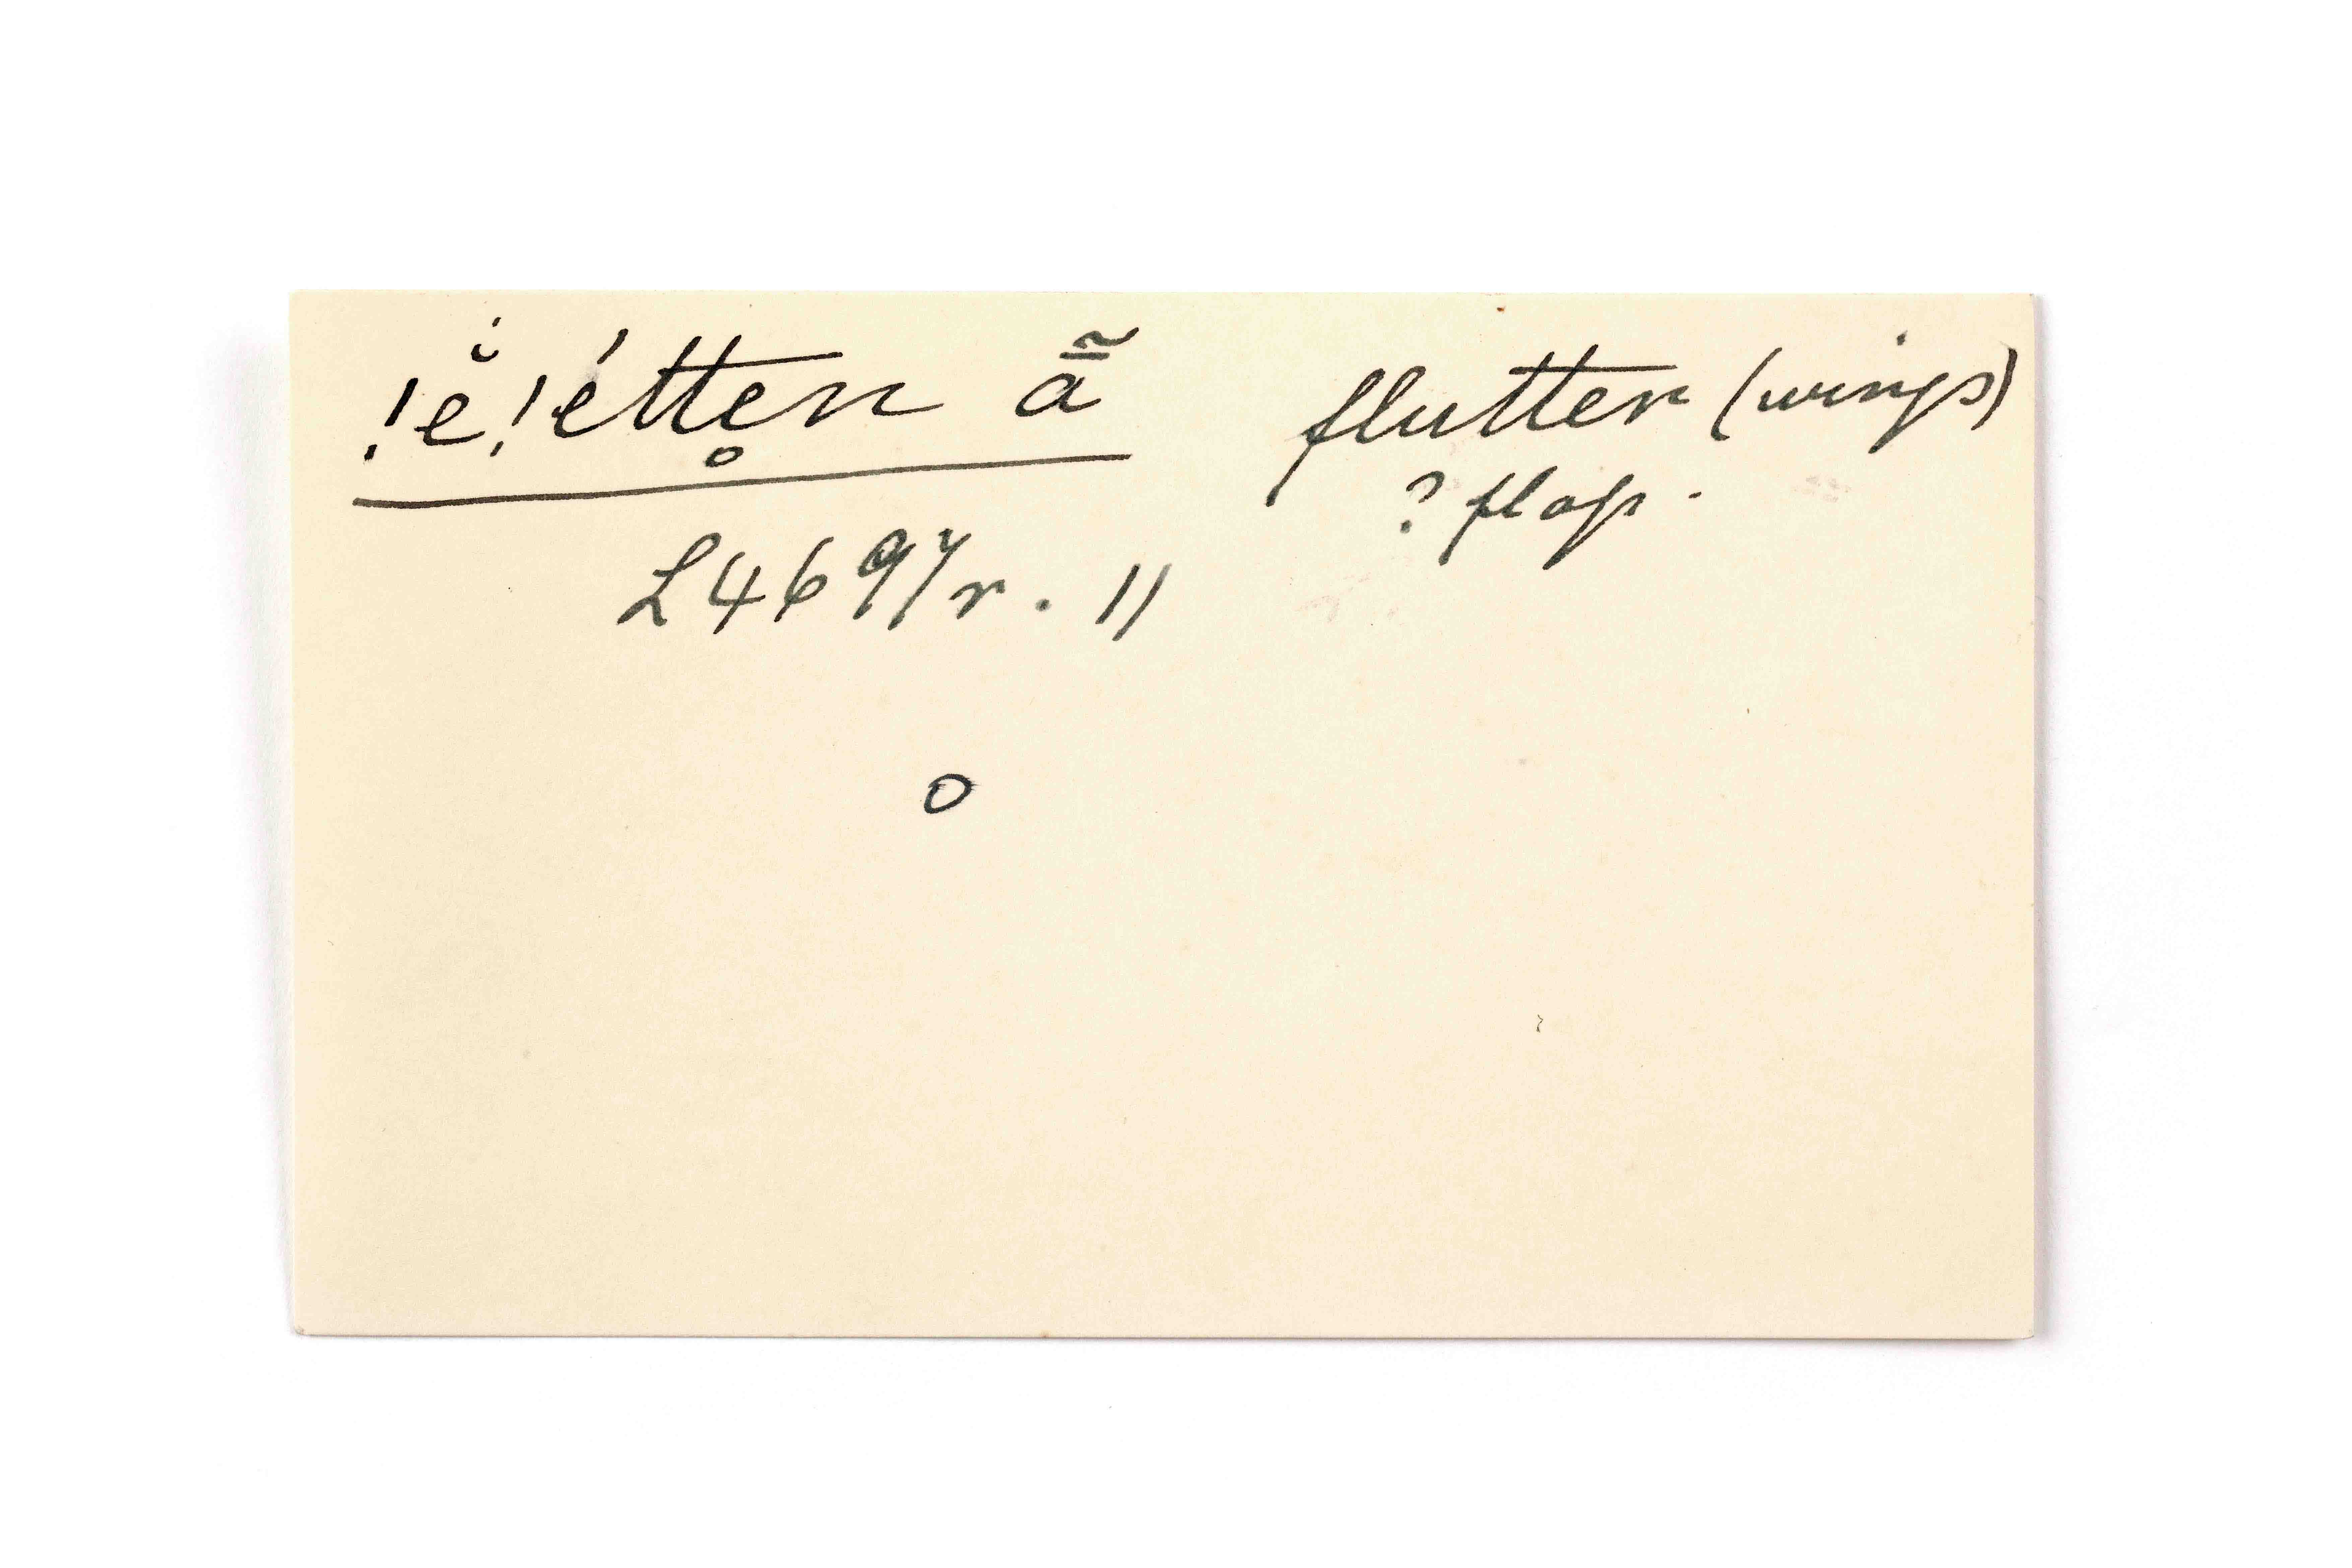 !ĕ́!étte̥n ā̃ flutter (wings)
? flap.
L4697r. 11
o